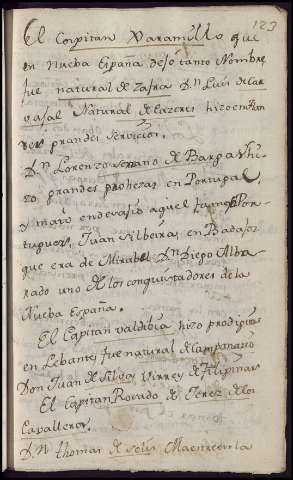 123
El Capitan Xaramillo que
en Nueba España dejó tanto Nombre
fue natural de Zafra Dn Luis de Car
vajal Natural de Cazeres hizo en
grandes servicios.
Dn Lorenzo Serrano de Barga hi
zo grandes prohezas en Portugal,
y mató en desafio aquel famoso Por
tugues, Juan Silbeira en Badajoz
que era de Mirabel Dn Diego Alba
rado uno de los conquistadores de la
Nueba España.
El Capitan Valdibia hizo prodigios
en Lebante, fue natural de Campanario
Don Juan de Silva Virrey de Filipinas
El Capitan Rosado de Jerez de los
Cavalleros.
Dn Thomas de Solis Maestre de la